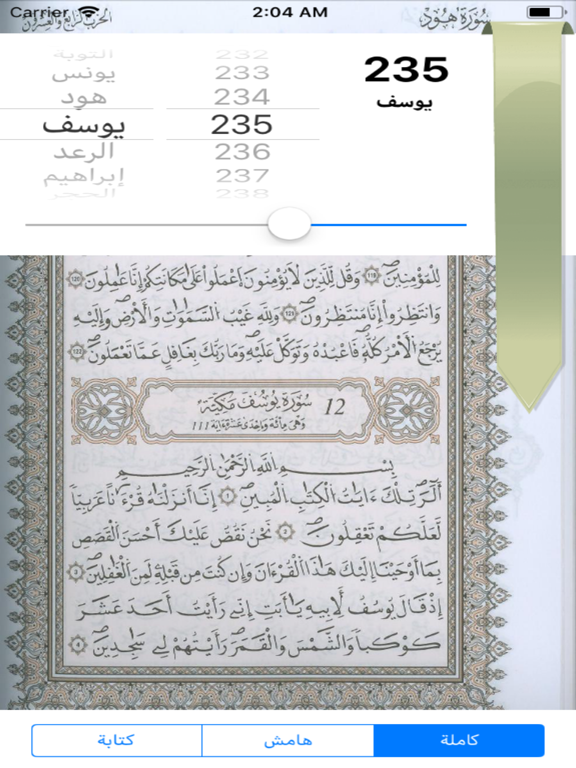 Carrier 2:04 AM
سُورَةُ هُودٍ
التوبة
يونس
هود
يوسف
الرعد
إبراهيم
الحجر
232
233
234
235
236
237
238
235
يوسف
لِلْمُؤْمِنِينَ 119 وَقُل لِّلذِينَ لَا يُؤْمِنُونَ اَعْمَلُواْ عَلَىٰ مَكَانَتِكُمُۥٓ إِنَّا عَٰمِلُونَ 120
وَانتَظِرُوٓاْ إِنَّا مُنتَظِرُونَ 121 وَلِلهِ غَيْبُ السَّمَٰوَٰتِ وَالْأَرْضِ وَإِلَيْهِ
يَرْجِعُ الْأَمْرُ كُلُّهُۥ فَاعْبُدْهُ وَتَوَكَّلْ عَلَيْهِ وَمَا رَبُّكَ بِغَٰفِلٍ عَمَّا تَعْمَلُونَ 122
12 سُورَةُ يُوسُفَ مَكِّيَّة
وَهِيَ مِائَة وَإِحْدَى عَشْرَةَ ءَايَة 111
بِسْمِ اللَّهِ الرَّحْمَٰنِ الرَّحِيمِ
أَلَٓر تِلْكَ ءَايَٰتُ الْكِتَٰبِ الْمُبِينِ 1 إِنَّآ أَنزَلْنَٰهُ قُرْءَٰناً عَرَبِيّاً
لَّعَلَّكُمْ تَعْقِلُونَ 2 نَحْنُ نَقُصُّ عَلَيْكَ أَحْسَنَ الْقَصَصِ
بِمَآ أَوْحَيْنَآ إِلَيْكَ هَٰذَا الْقُرْءَانَ وَإِن كُنتَ مِن قَبْلِهِۦ لَمِنَ الْغَٰفِلِينَ 3
إِذْ قَالَ يُوسُفُ لِأَبِيهِ يَٰٓأَبَتِ إِنِّي رَأَيْتُ أَحَدَ عَشَرَ
كَوْكَباً وَالشَّمْسَ وَالْقَمَرَ رَأَيْتُهُمْ لِي سَٰجِدِينَ 4
كتابة
هامش
كاملة